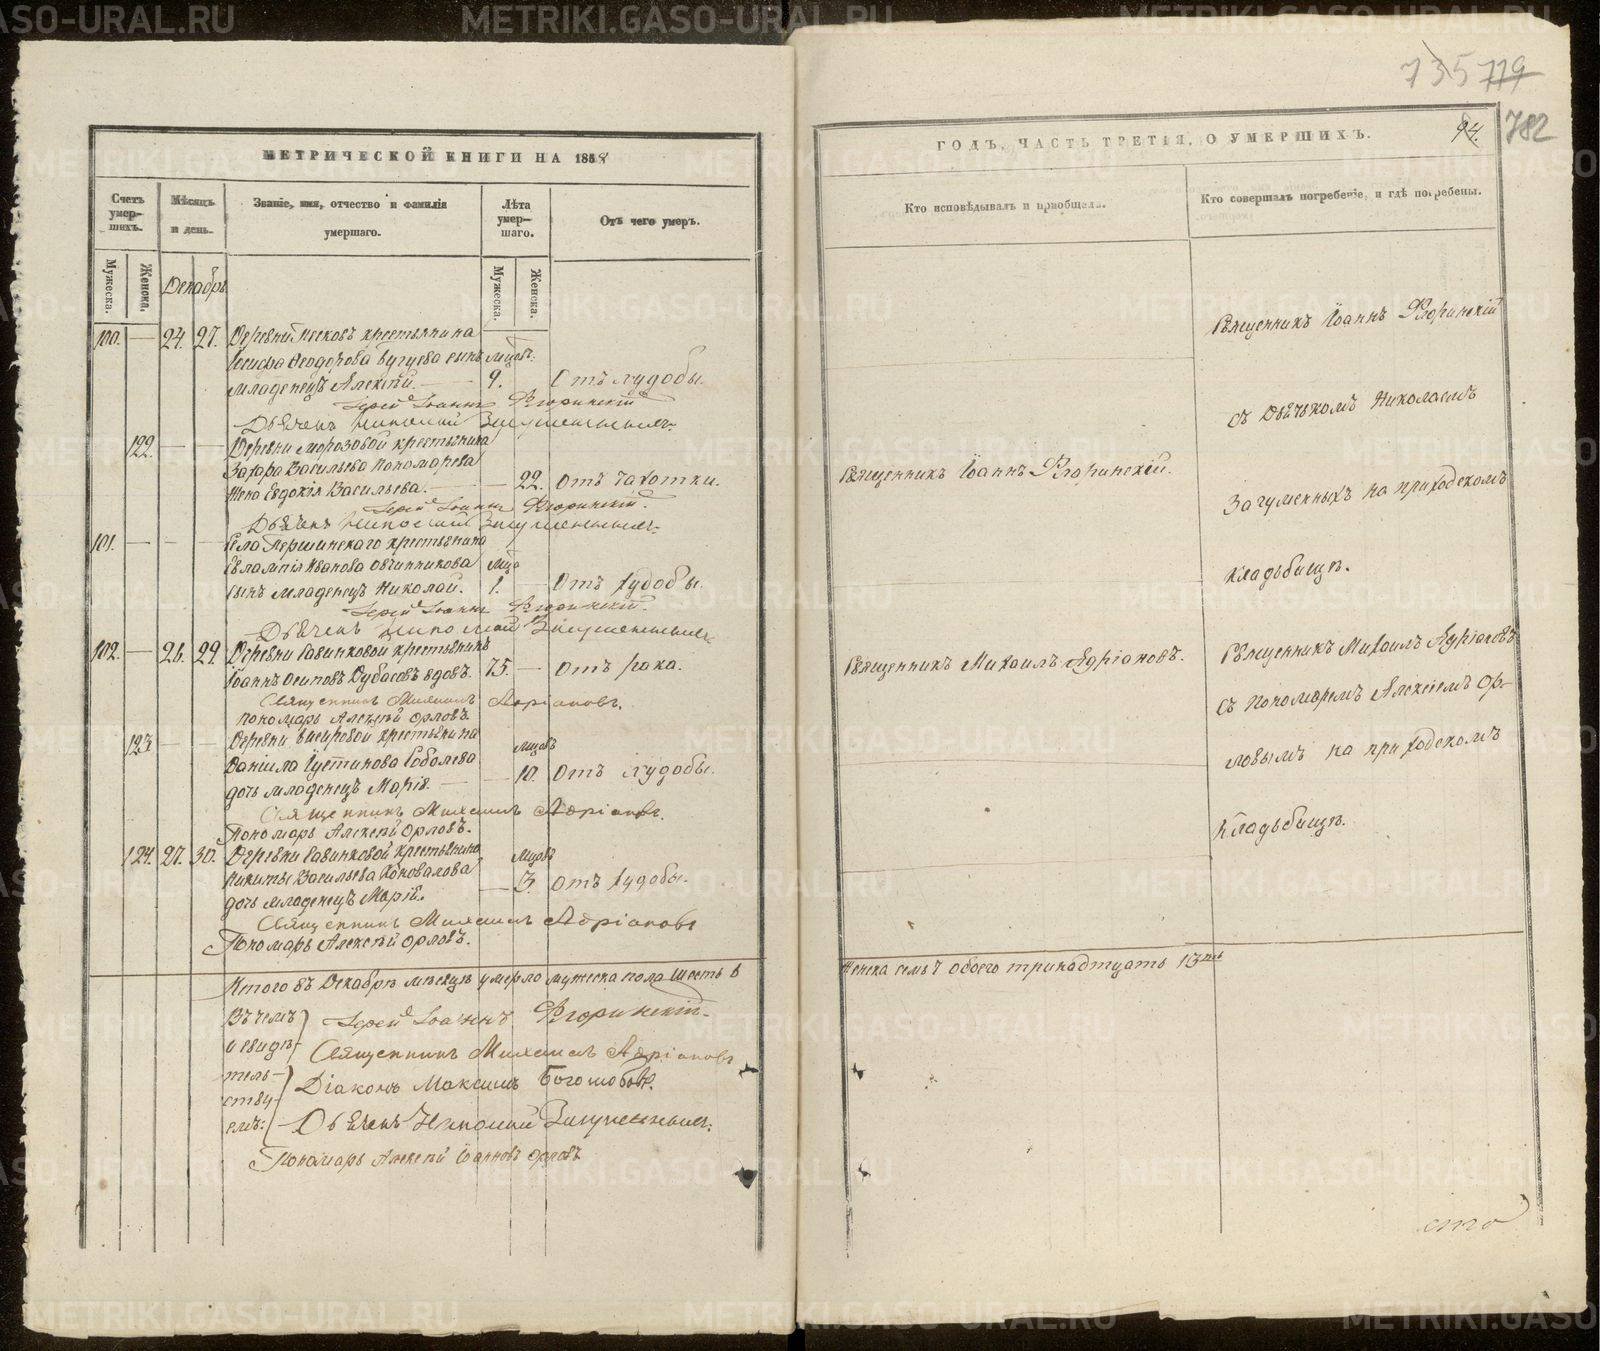 735 779
782
94.
МЕТРИЧЕСКОЙ КНИГИ НА 1858
ГОДЪ, ЧАСТЬ ТРЕТІЯ, О УМЕРШИХЪ.
Счетъ умер-шихъ.
Мѣсяцъ и день.
Званіе, имя, отчество и фамилія умершаго.
Лѣта умер-шаго.
Отъ чего умеръ.
Кто исповѣдывалъ и пріобщалъ.
Кто совершалъ погребеніе, и гдѣ погребены.
Мужеска.
Женска.
Декабрь
Мужеска.
Женска.
100. — 24. 27. Деревни Песковъ крестьянина
Іосифа Ѳеодорова сынъ мцовъ:
младенецъ Алексій. — 9. Отъ худобы.
Іерей Іоаннъ Флоринскій
Дьячекъ Николай Загуменныхъ.
122. — — Деревни Морозовой крестьянина
Захара Васильева Пономарева
жена Евдокія Васильева. — 22. Отъ чахотки.
Іерей Іоаннъ Флоринскій.
Дьячекъ Николай Загуменныхъ.
101. — — — Села Першинскаго крестьянина
Евлампія Иванова Овчинникова мца
сынъ младенецъ Николай. 1. — Отъ худобы.
Іерей Іоаннъ Флоринскій.
Дьячекъ Николай Загуменныхъ
102. — 26. 29. Деревни Савинковой крестьянинъ
Іоаннъ Осиповъ Дубасовъ вдовъ. 75. — Отъ рака.
Священникъ Михаилъ Адріановъ.
Пономарь Алексѣй Орловъ.
123 — — Деревни крестьянина
Даніила Іустинова Соболева мцовъ
дочь младенецъ Марія. — — 10. Отъ худобы.
Священникъ Михаилъ Адріановъ.
Пономарь Алексѣй Орловъ.
124. 27. 30. Деревни Савинковой крестьянина
Никиты Васильева Коновалова мцовъ
дочь младенецъ Марія. — 3. Отъ худобы.
Священникъ Михаилъ Адріановъ
Пономарь Алексѣй Орловъ.
Итого въ Декабрѣ мѣсяцѣ умерло мужеска пола шесть 6
Въ чемъ
и свидѣ-
тель-
ству-
емъ:
Іерей Іоаннъ Флоринскій.
Священникъ Михаилъ Адріановъ
Діаконъ Максимъ Боголюбовъ.
Дьячекъ Николай Загуменныхъ.
Пономарь Алексѣй Іоанновъ Орловъ
Священникъ Іоаннъ Флоринскій.
Священникъ Михаилъ Адріановъ.
Женска семь 7 обоего тринадтцать 13ть
Священникъ Іоаннъ Флоринскій
съ Дьячькомъ Николаемъ
Загуменныхъ на приходскомъ
кладьбищѣ.
Священникъ Михаилъ Адріановъ
съ Пономаремъ Алексіемъ Ор-
ловымъ на приходскомъ
кладьбищѣ.
сто
METRIKI.GASO-URAL.RU